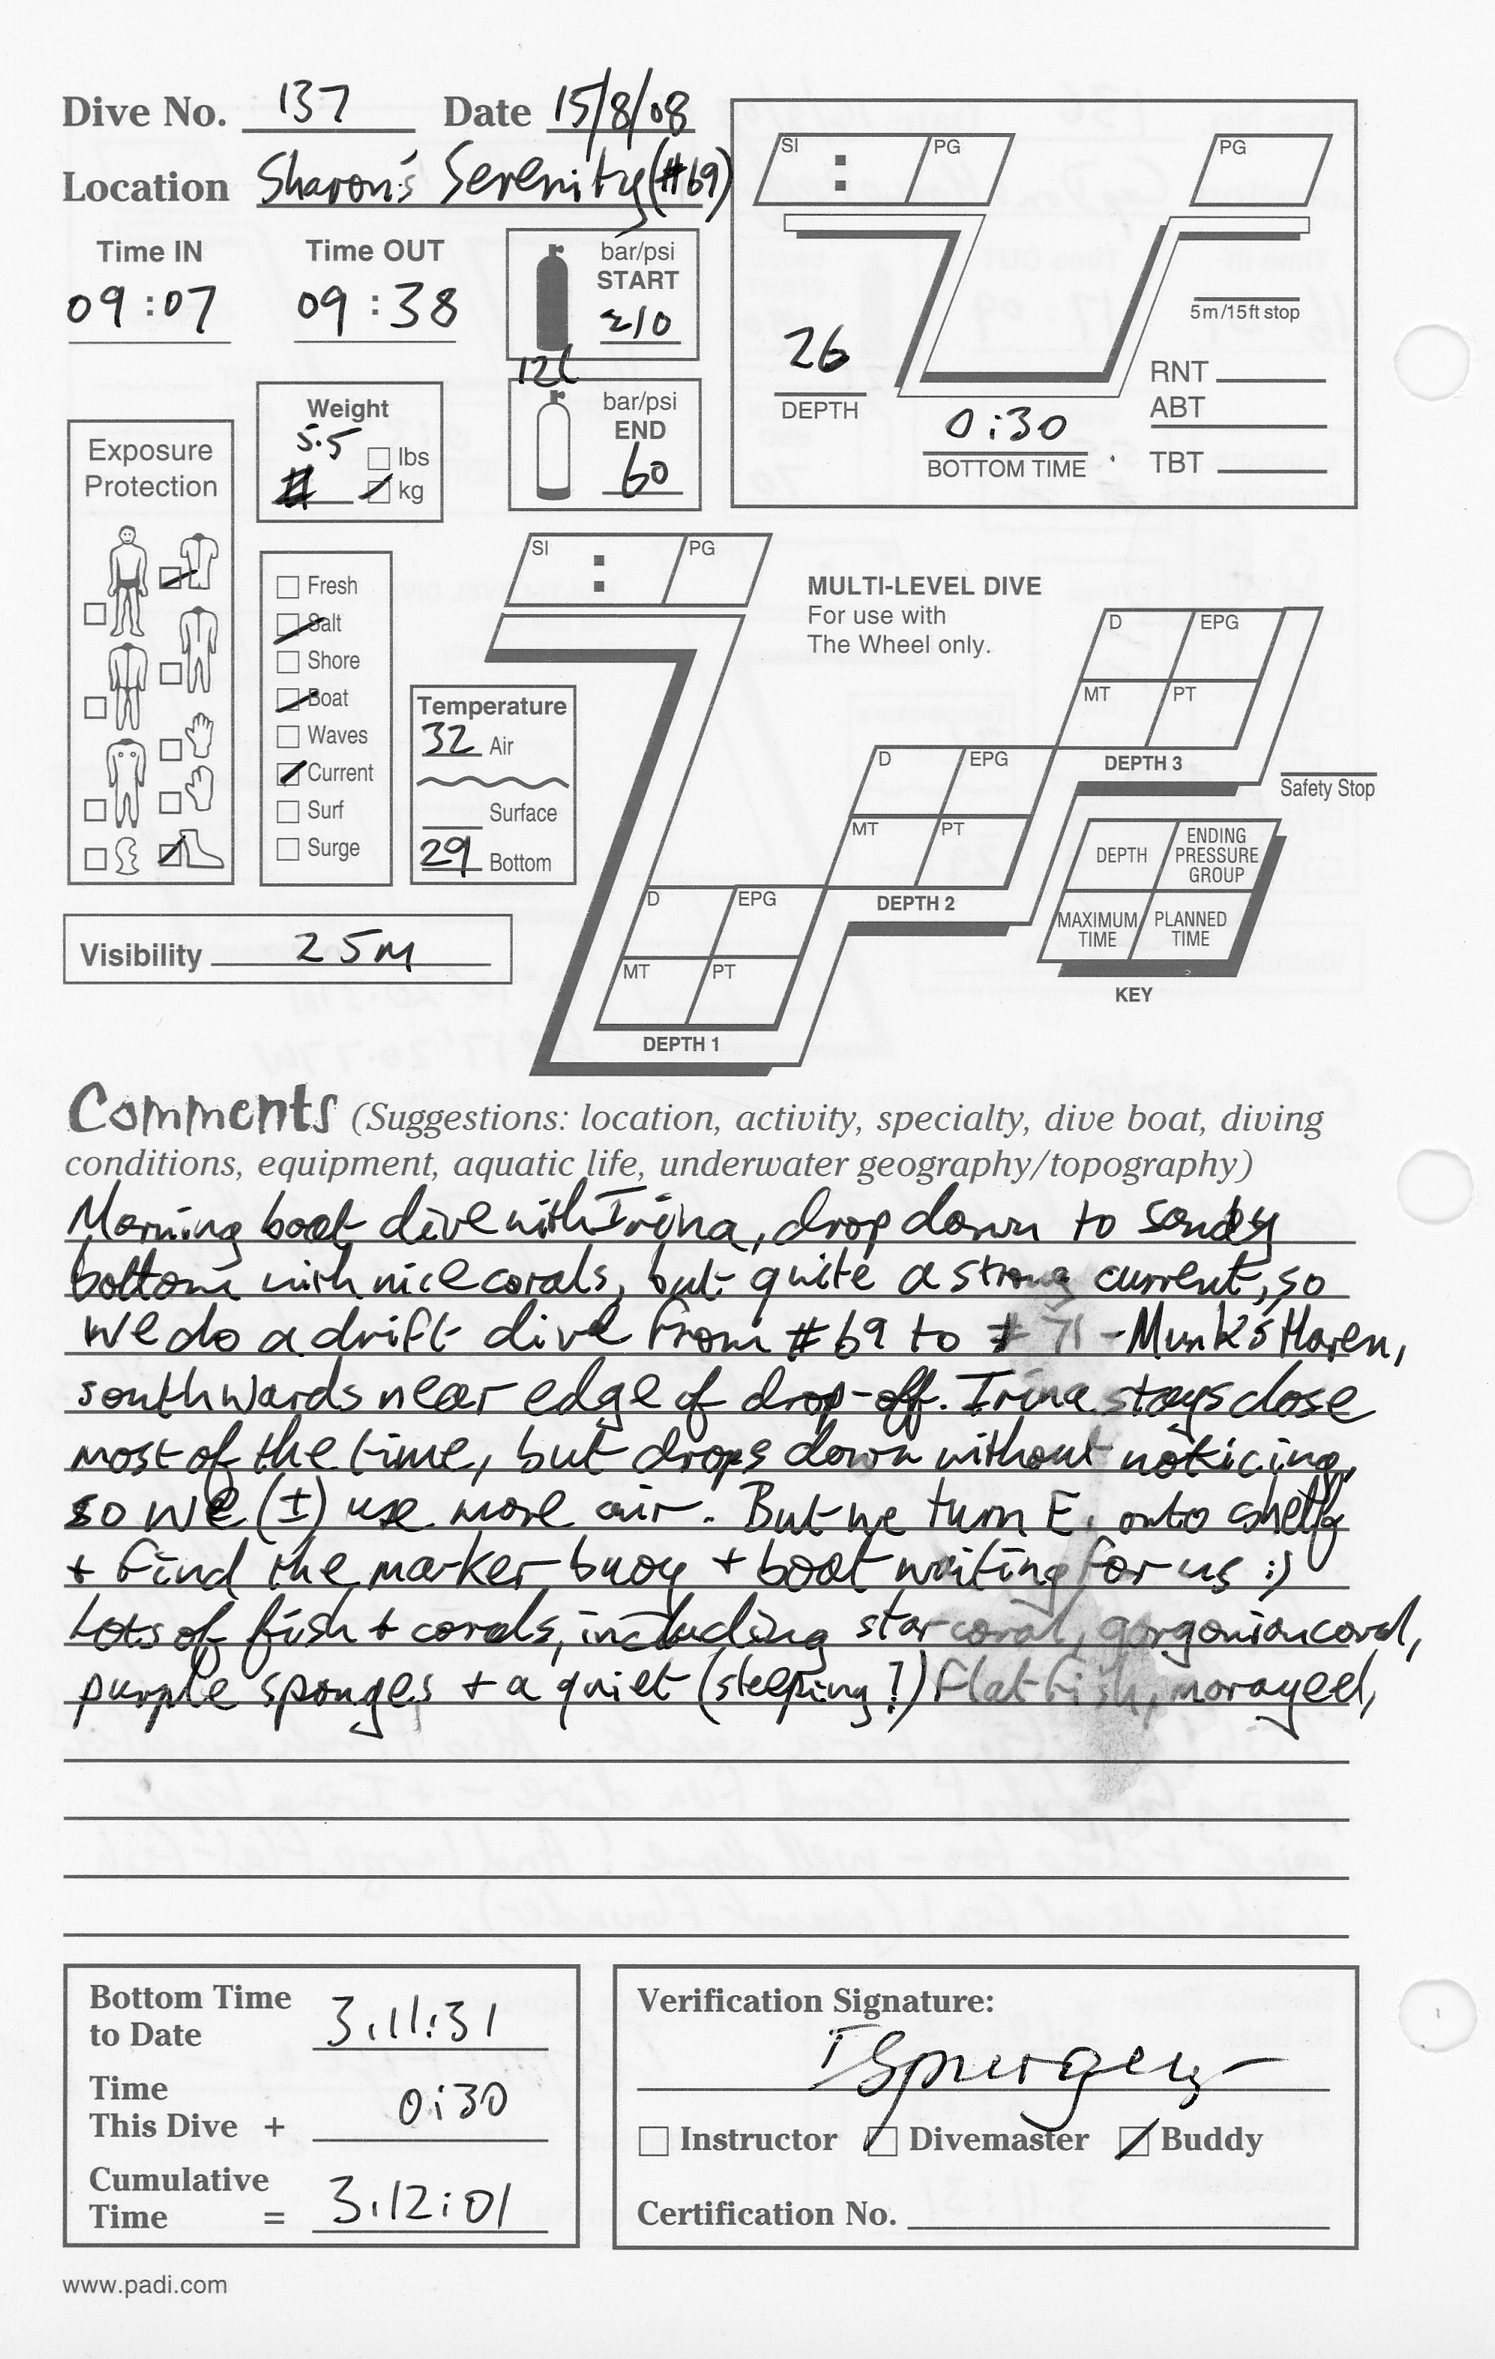 Dive No. 137 Date 15/8/08
Location Sharon's Serenity (#69)
Time IN Time OUT
09:07 09:38
bar/psi
START
210
12l
bar/psi
END
60
Weight
5.5
lbs
kg
Exposure
Protection
Fresh
Salt
Shore
Boat
Waves
Current
Surf
Surge
Temperature
32 Air
Surface
29 Bottom
Visibility 25m
SI : PG
PG
5m/15ft stop
26
DEPTH
0:30
BOTTOM TIME
RNT
ABT
TBT
SI : PG
MULTI-LEVEL DIVE
For use with
The Wheel only.
D EPG
MT PT
DEPTH 3
Safety Stop
D EPG
MT PT
DEPTH 2
D EPG
MT PT
DEPTH 1
DEPTH
ENDING
PRESSURE
GROUP
MAXIMUM
TIME
PLANNED
TIME
KEY
Comments (Suggestions: location, activity, specialty, dive boat, diving
conditions, equipment, aquatic life, underwater geography/topography)
Morning boat dive with Irina, drop down to sandy
bottom with nice corals, but quite a strong current, so
we do a drift dive from #69 to #71 - Munk's Haven,
southwards near edge of drop-off. Irina stays close
most of the time, but drops down without noticing,
so we (I) use more air. But we turn E. onto shelf
+ find the marker buoy + boat waiting for us :)
Lots of fish + corals, including star coral, gorgonian coral,
purple sponges + a quiet (sleeping?) flatfish, moray eel,
Bottom Time
to Date 3:11:31
Time
This Dive + 0:30
Cumulative
Time = 3:12:01
Verification Signature:
ISpurgeon
Instructor Divemaster Buddy
Certification No.
www.padi.com